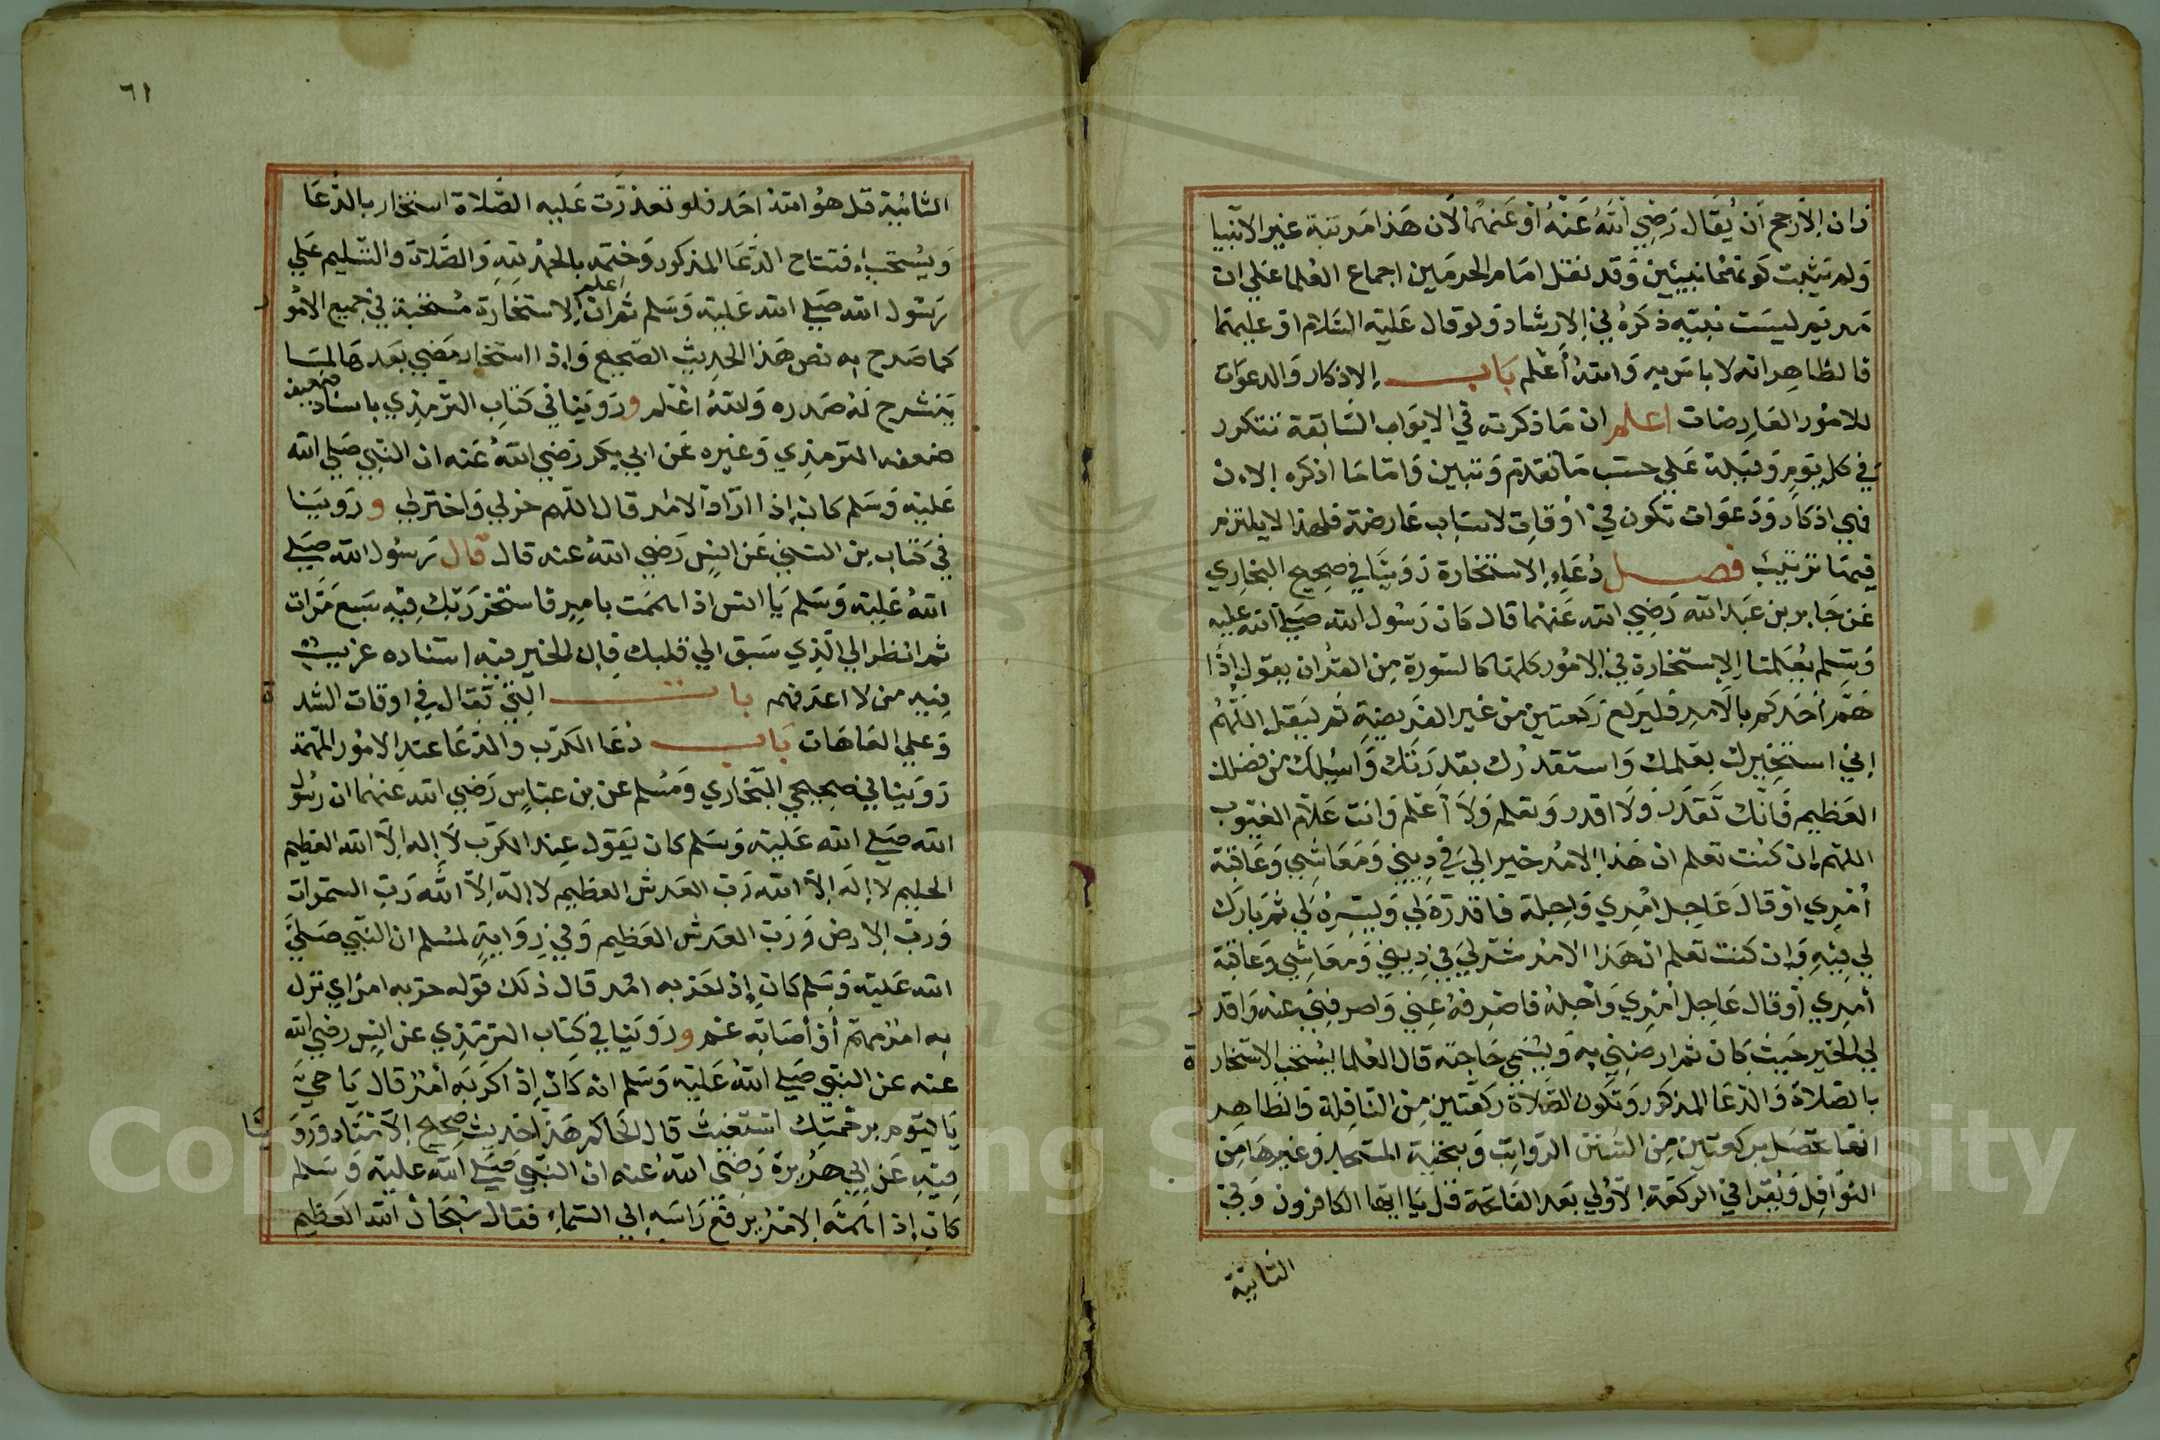 وان الارجح ان يقال رضي الله عنه او عنهما لان هذا مرتبة غير الانبيا
ولم يثبت كونهما نبيين وقد نقل امام الحرمين اجماع العلما علي ان
مريم ليست نبيه ذكره في الارشاد ولو قال عليه السلام او عليهما
فالظاهر انه لا باس به والله أعلم باب الاذكار والدعوات
للامور العارضات اعلم ان ما ذكرته في الابواب السابقة تتكرر
في كل يوم وليلة علي حسب ما تقدم وتبين واما ما اذكره الان
فهي اذكار ودعوات تكون في اوقات لاسباب عارضة فلهذا لا يلتزم
فيها ترتيب فصل دعاء الاستخارة روينا في صحيح البخاري
عن جابر بن عبد الله رضي الله عنهما قال كان رسول الله صلي الله عليه
وسلم يعلمنا الاستخارة في الامور كلها كالسورة من القران يقول إذا
هم أحدكم بالامر فليركع ركعتين من غير الفريضة ثم ليقل اللهم
اني استخيرك بعلمك واستقدرك بقدرتك واسئلك من فضلك
العظيم فانك تقدر ولا اقدر وتعلم ولا أعلم وانت علام الغيوب
اللهم ان كنت تعلم ان هذا الامر خير الي في ديني ومعاشي وعاقبة
أمري او قال عاجل امري واجله فاقدره لي ويسره لي ثم بارك
لي فيه وان كنت تعلم ان هذا الامر شر لي في ديني ومعاشي وعاقبة
أمري أو قال عاجل أمري وأجله فاصرفه عني واصرفني عنه واقدر
لي الخير حيث كان ثم ارضني به ويسمي حاجته قال العلما يستحب الاستخارة
بالصلاة والدعا المذكور وتكون الصلاة ركعتين من النافلة والظاهر
انها تحصل بركعتين من السنن الرواتب وبتحية المسجد وغيرها من
النوافل ويقرا في الركعة الاولي بعد الفاتحة قل يا ايها الكافرون وفي
الثانية
٦١
الثانية قل هو الله احد فلو تعذرت عليه الصلاة استخار بالدعا
ويستحب افتتاح الدعا المذكور وختمه بالحمد لله والصلاة والتسليم علي
رسول الله صلي الله عليه وسلم ثم اعلم ان الاستخارة مستحبة في جميع الامور
كما صرح به نص هذا الحديث الصحيح واذا استخار مضي بعدها لما
ينشرح له صدره والله اعلم وروينا في كتاب الترمذي باسناد ضعيف
ضعفه الترمذي وغيره عن ابي بكر رضي الله عنه ان النبي صلي الله
عليه وسلم كان اذا اراد الامر قال اللهم خر لي واختر لي وروينا
في كتاب بن السني عن انس رضي الله عنه قال قال رسول الله صلي
الله عليه وسلم يا انس اذا هممت بامر فاستخر ربك فيه سبع مرات
ثم انظر الي الذي سبق الي قلبك فان الخير فيه اسناده غريب
فيه من لا اعرفهم باب التي تقال في اوقات الشدة
وعلي العاهات باب دعا الكرب والدعا عند الامور المهمة
روينا في صحيحي البخاري ومسلم عن بن عباس رضي الله عنهما ان رسول
الله صلي الله عليه وسلم كان يقول عند الكرب لا إله الا الله العظيم
الحليم لا إله إلا الله رب العرش العظيم لا اله الا الله رب السموات
ورب الارض ورب العرش العظيم وفي رواية لمسلم ان النبي صلي
الله عليه وسلم كان إذا حزبه أمر قال ذلك قوله حزبه امر اي نزل
به امر مهم أو أصابه غم وروينا في كتاب الترمذي عن انس رضي الله
عنه عن النبي صلي الله عليه وسلم انه كان إذا كربه أمر قال يا حي
يا قيوم برحمتك استغيث قال الحاكم هذا حديث صحيح الاسناد وروينا
فيه عن ابي هريرة رضي الله عنه ان النبي صلي الله عليه وسلم
كان إذا اهمه الامر يرفع راسه الي السماء فقال سبحان الله العظيم
Copyright © King Saud University